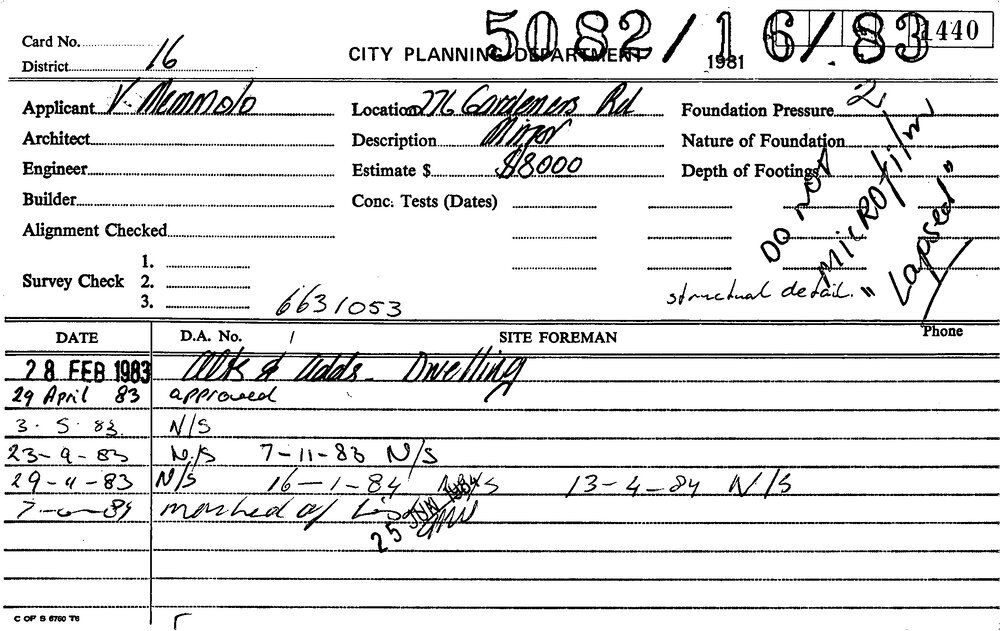 5082/16/83
Card No. 1440
District 16 CITY PLANNING DEPARTMENT 1981
Applicant V. Memmolo Location 276 Gardeners Rd Foundation Pressure 2
Architect Description Minor Nature of Foundation
Engineer Estimate $ $8000 Depth of Footings
Builder Conc. Tests (Dates)
Alignment Checked
DO NOT
MICROfilm
"Lapsed"
1.
Survey Check 2.
3.
structural detail.
6631053
Phone
DATE D.A. No. SITE FOREMAN
28 FEB 1983 Alts & adds. Dwelling
29 April 83 approved
3.5.83. N/S
23-9-83 N/S 7-11-83 N/S
29-11-83 N/S 16-1-84 N/S 13-4-84 N/S
marked off
25 JUN 1984
C OF S 6760 T6